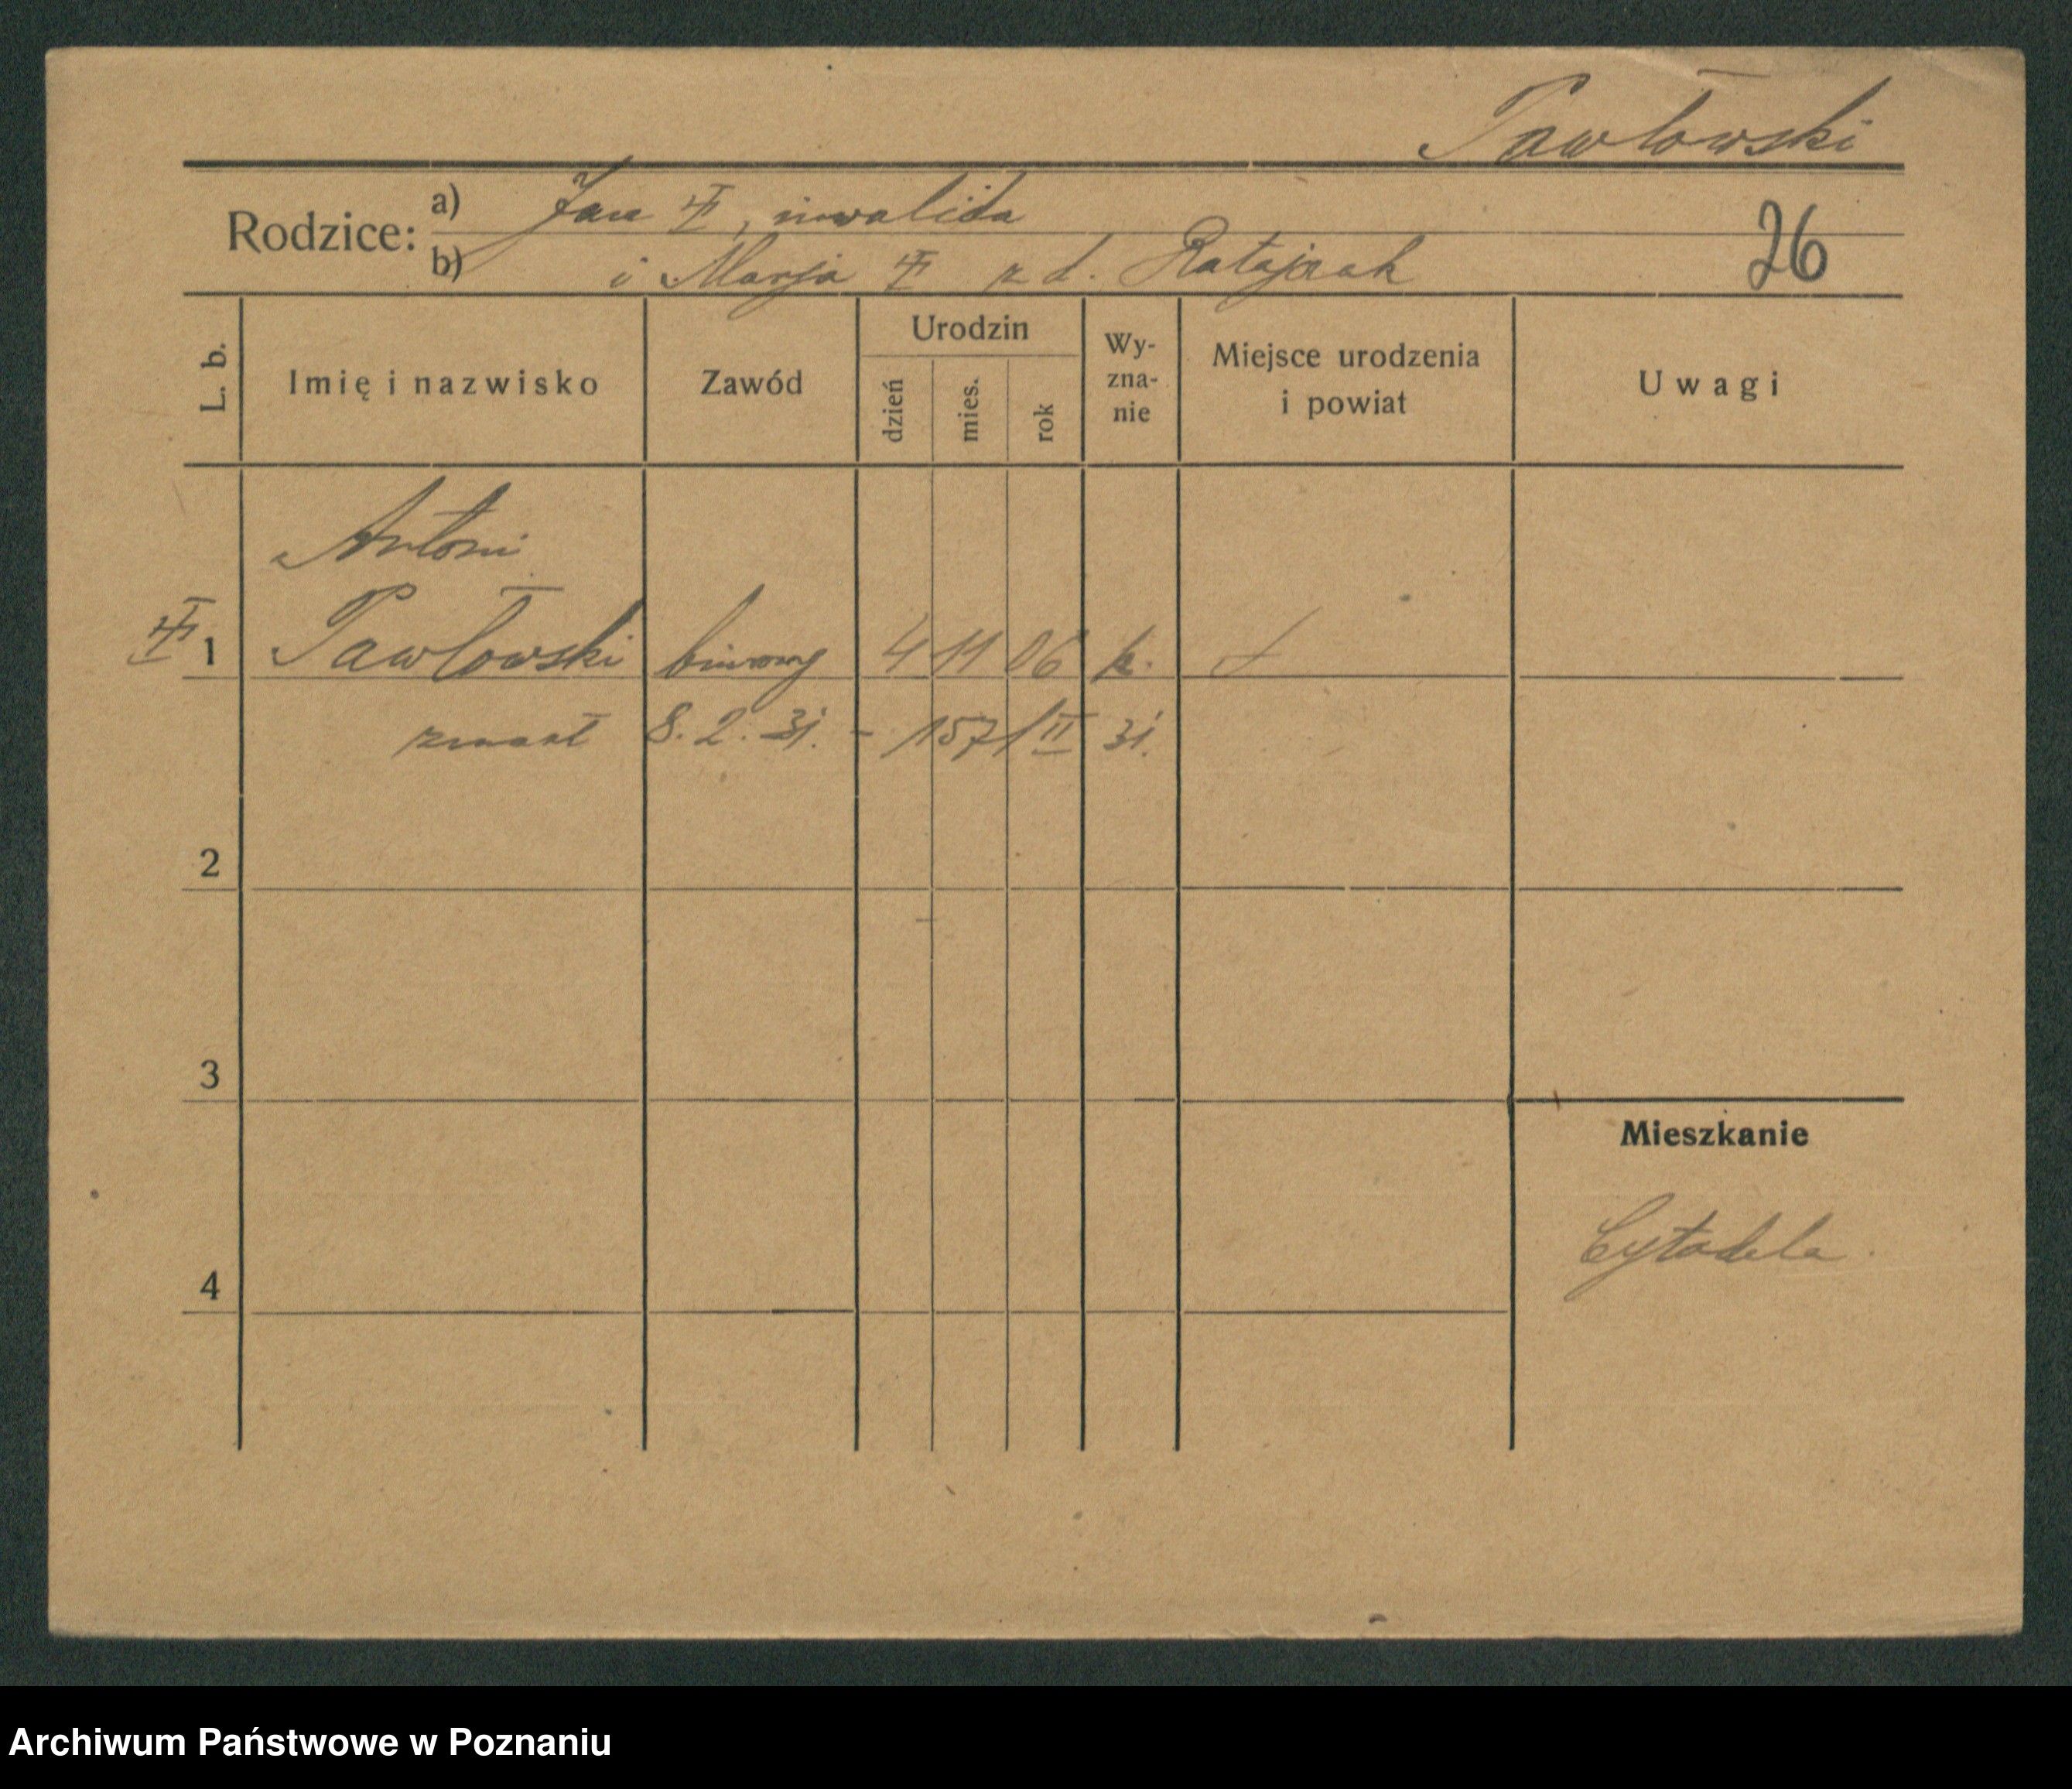 Pawłowski
Rodzice: a) Jan, inwalida
b) i Marja z d. Ratajczak
26
L. b.
Imię i nazwisko
Zawód
Urodzin
dzień
mies.
rok
Wy-
zna-
nie
Miejsce urodzenia
i powiat
Uwagi
Antoni
1 Pawłowski biurowy 4 11 06 k.
zmarł 8.2.31. - 157/II 31.
2
3
4
Mieszkanie
Cytadela
Archiwum Państwowe w Poznaniu